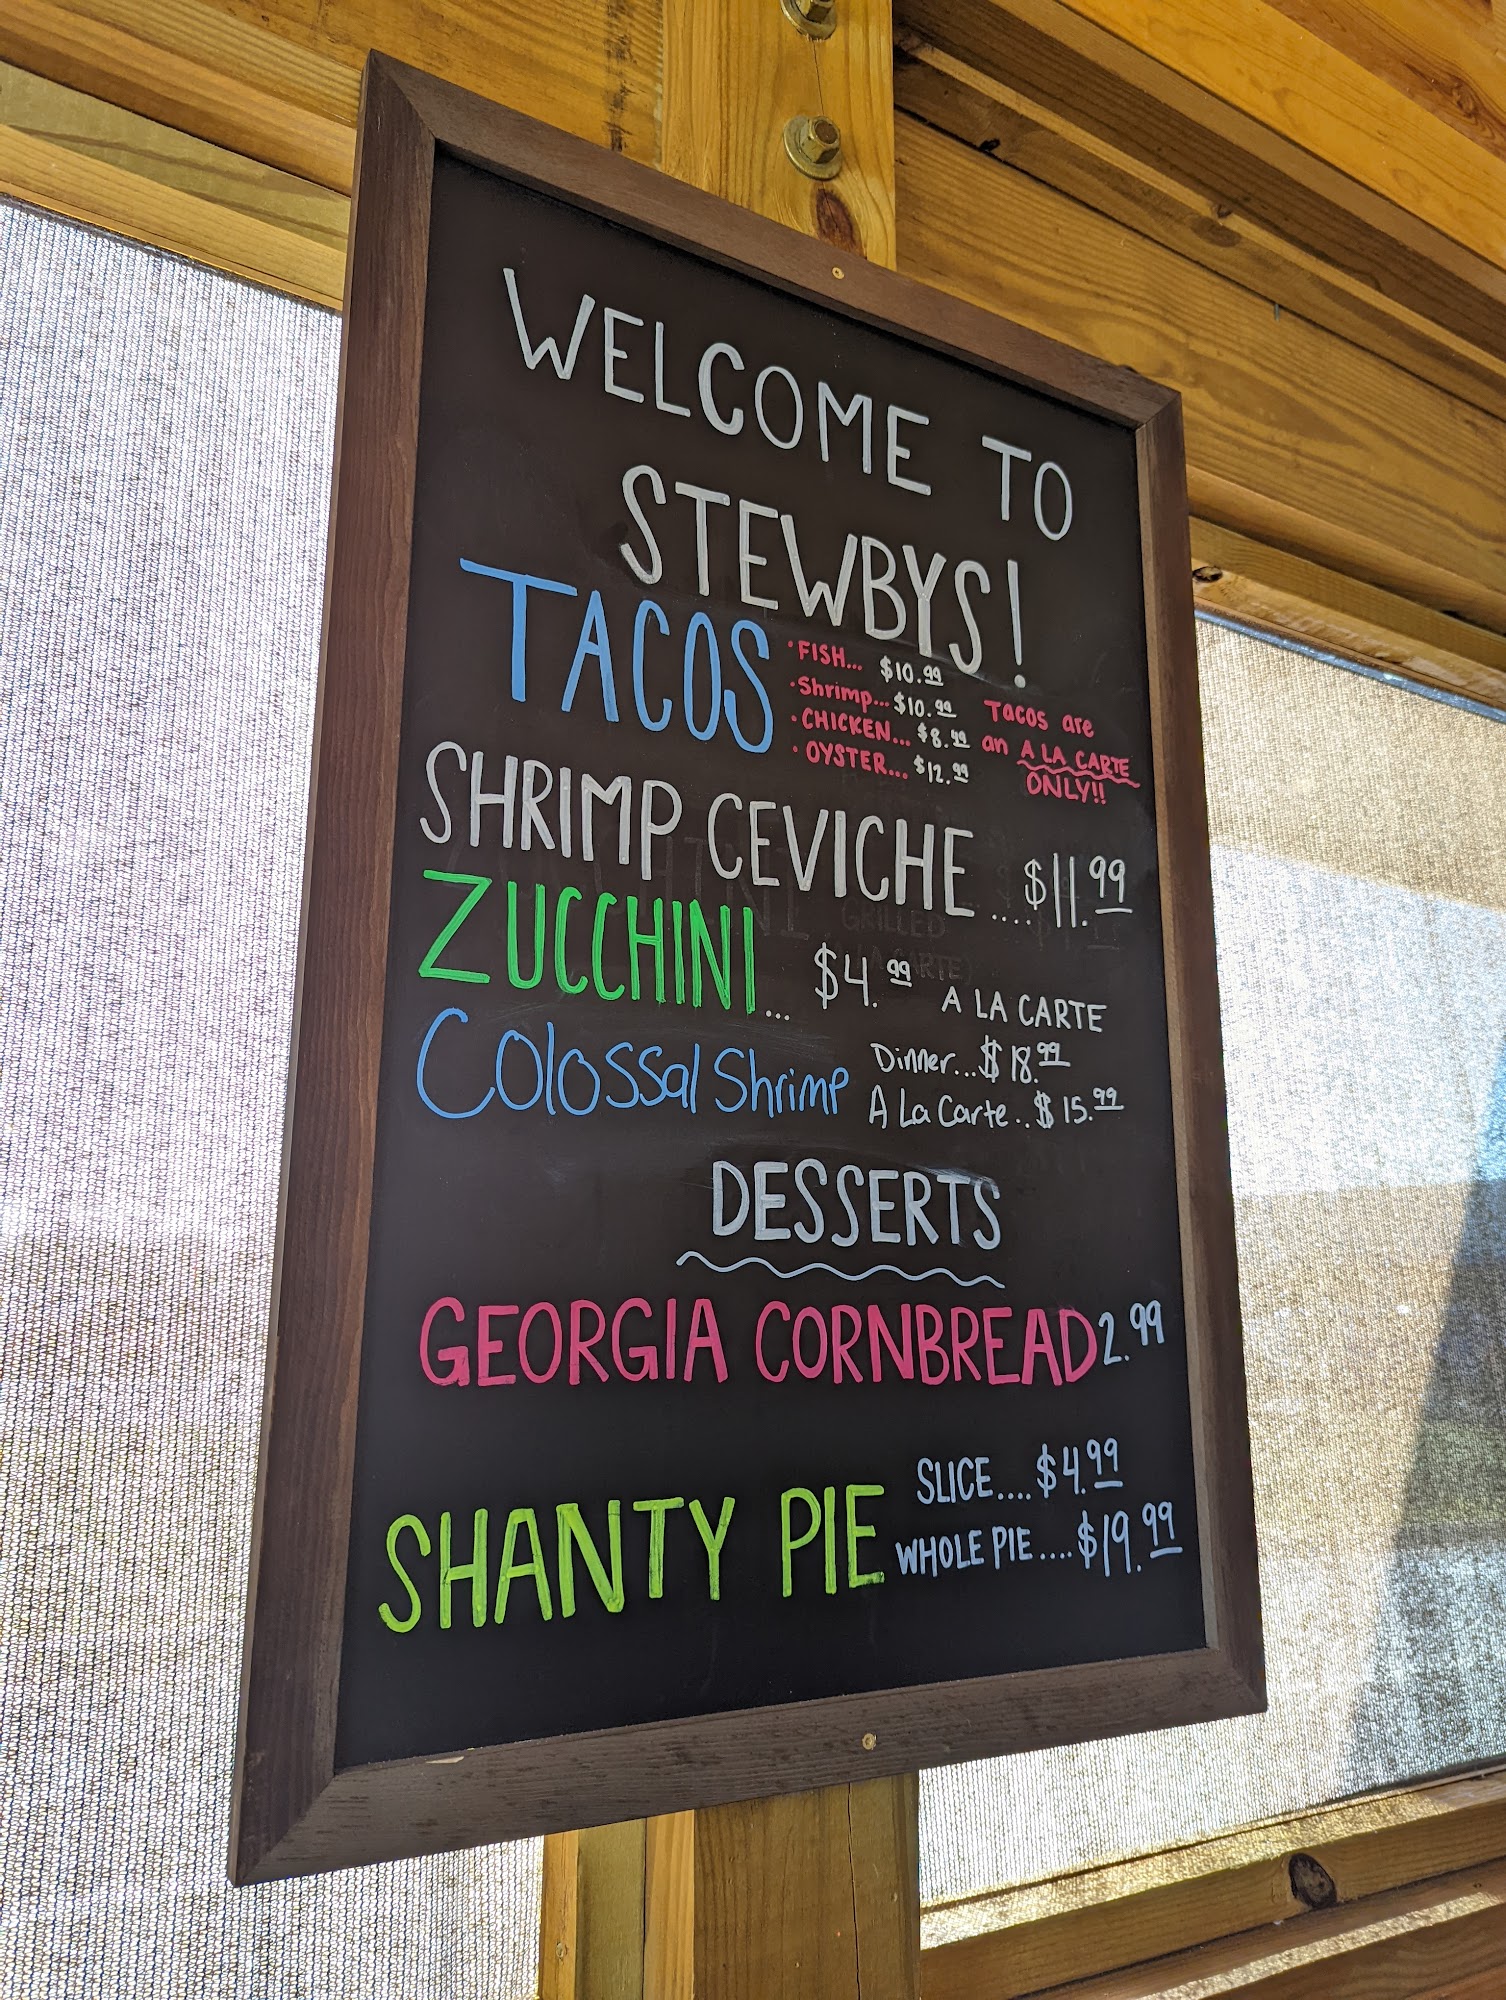 WELCOME TO
STEWBYS!
TACOS
• FISH... $10.99
• Shrimp... $10.99
• CHICKEN... $8.99
• OYSTER... $12.99
Tacos are
an A LA CARTE
ONLY!!
SHRIMP CEVICHE .... $11.99
ZUCCHINI... $4.99 A LA CARTE
Colossal Shrimp
Dinner... $18.99
A La Carte.. $15.99
DESSERTS
GEORGIA CORNBREAD 2.99
SHANTY PIE
SLICE.... $4.99
WHOLE PIE.... $19.99